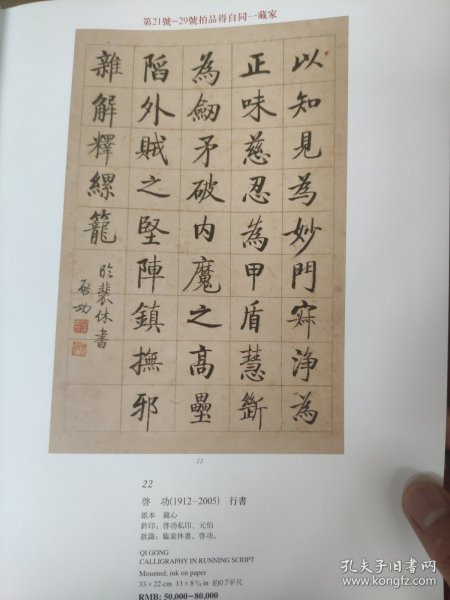 第21號-29號拍品得自同一藏家
以知見為妙門寂淨為
正味慈忍為甲盾慧斷
為劒矛破内魔之高壘
陷外賊之堅陣鎮撫邪
雜解釋縲籠
臨裴休書
啓功
22
22
啓 功(1912-2005) 行書
紙本 鏡心
鈐印:啓功私印、元伯
款識:臨裴休書。啓功。
QI GONG
CALLIGRAPHY IN RUNNING SCRIPT
Mounted; ink on paper
33×22 cm 13×8 ¾ in 約0.7平尺
RMB: 50,000-80,000
孔夫子旧书网